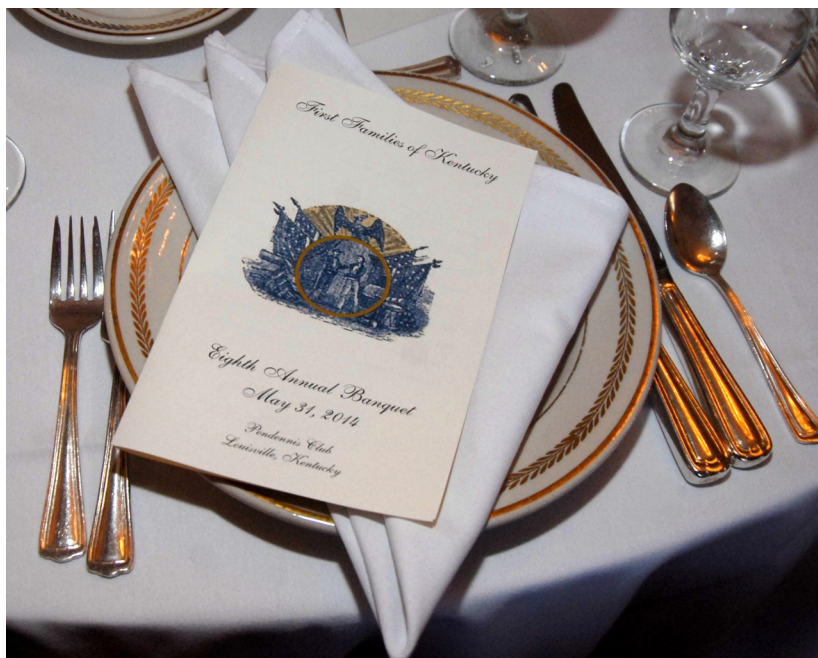 First Families of Kentucky
Eighth Annual Banquet
May 31, 2014
Pendennis Club
Louisville, Kentucky